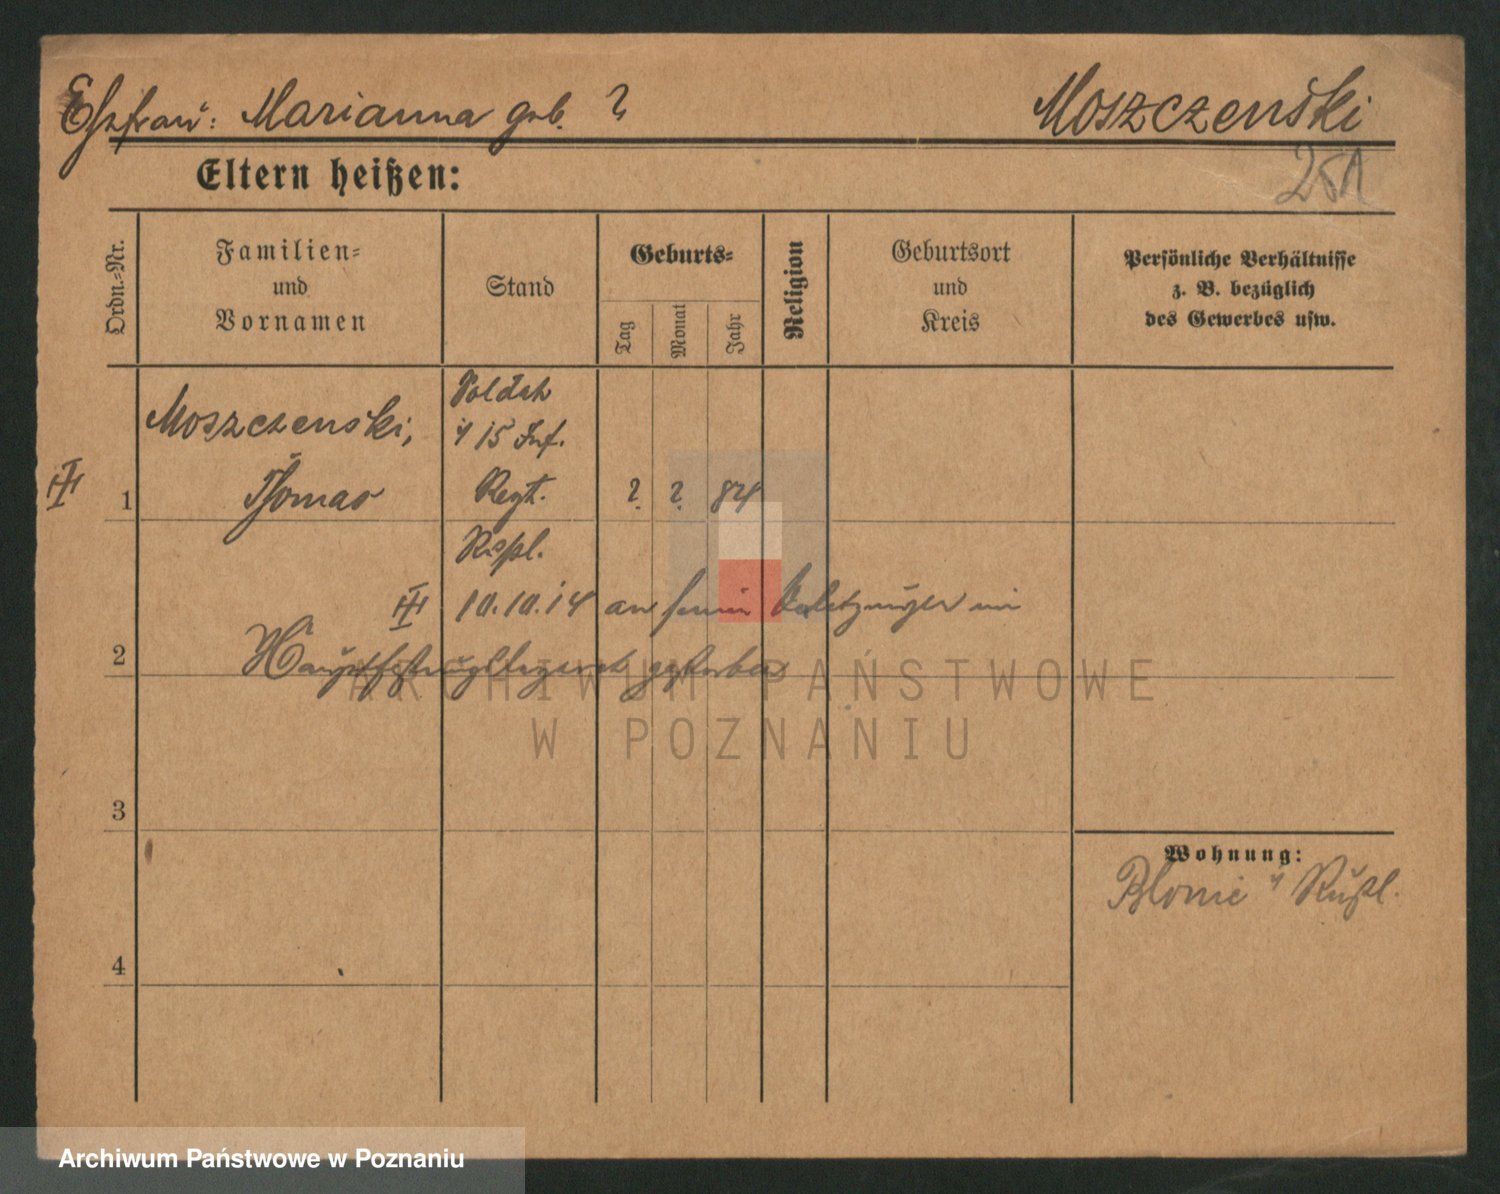 Ehefrau: Marianna geb. ?
Moszczenski
251
Eltern heißen:
Ordn.=Nr.
Familien=
und
Vornamen
Stand
Geburts=
Tag
Monat
Jahr
Religion
Geburtsort
und
Kreis
Persönliche Verhältnisse
z. B. bezüglich
des Gewerbes usw.
Moszczenski,
Thomas
Soldat
15 Inf.
Regt.
Rußl.
1
? ? 84
10.10.14 an seinen Verletzungen im
2
Hauptfestungslazarett gestorben
3
4
Wohnung:
Blonie Rußl.
ARCHIWUM PAŃSTWOWE
W POZNANIU
Archiwum Państwowe w Poznaniu